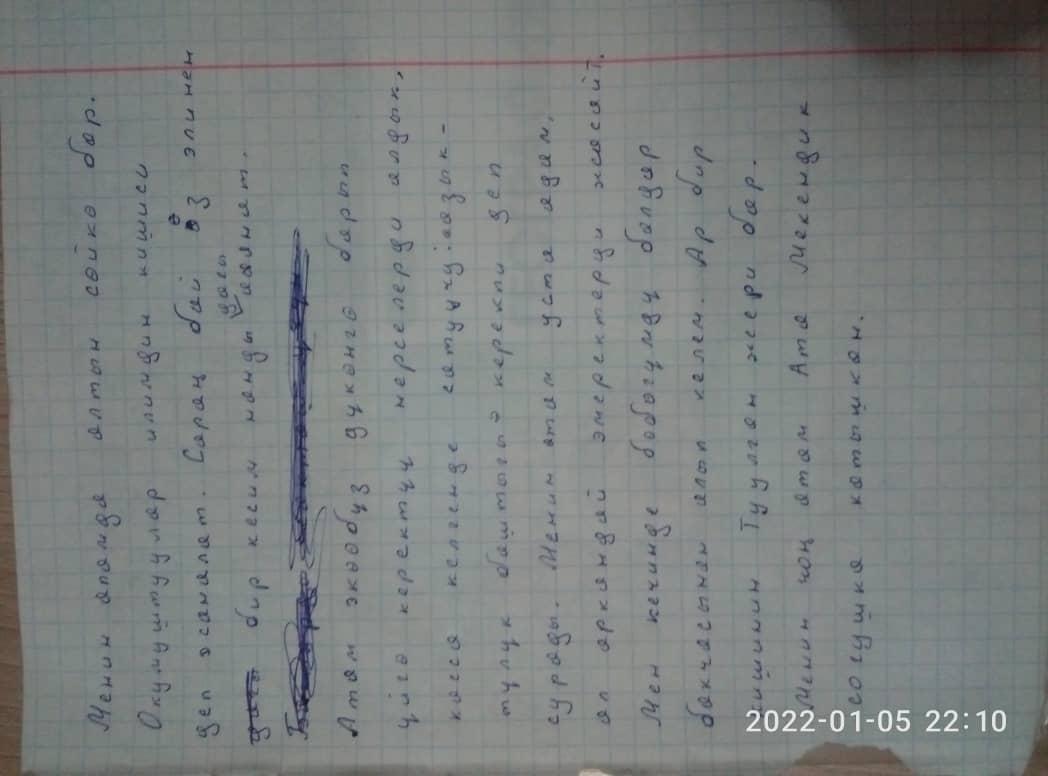 Менин апамда алтын сөйкө бар.
Окумуштуулар илимдин кишиси
деп эсанат. Сараң бай өз элинен
дагы
бир кесим нанды аянат.
Атам экөөбүз дүкөнгө барып
үйгө керектүү нерселерди алдык,
касса келгенде сатуучу: азык-
түлүк баштыгы керекпи деп
сурады. Менин атам уста адам,
ал аркандай эмеректерди жасайт.
Мен кечинде бөбөгүмдү балдар
бакчасынан алып келем. Ар бир
кишинин Туулган жери бар.
Менин чоң атам Ата Мекендик
согушка катышкан.
2022-01-05 22:10